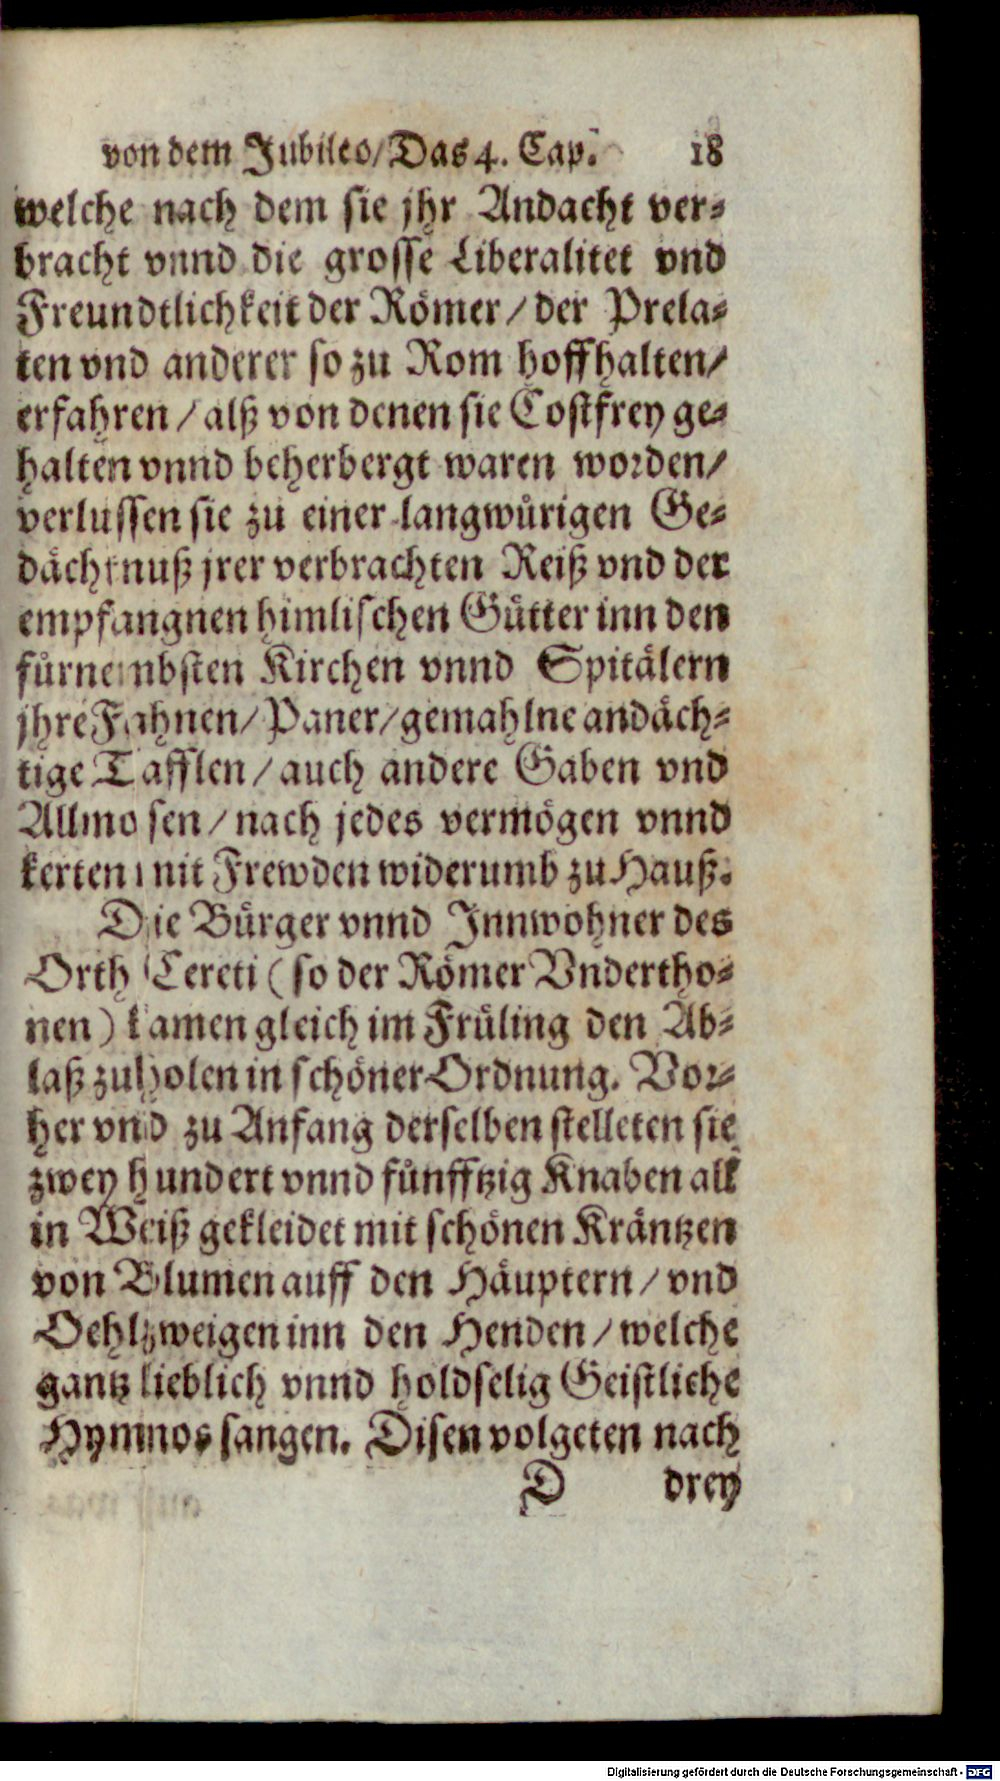 von dem Jubileo/Das 4. Cap. 18
welche nach dem sie jhr Andacht ver-
bracht vnnd die grosse Liberalitet vnd
Freundtlichkeit der Römer/der Prela-
ten vnd anderer so zu Rom hoffhalten/
erfahren/alß von denen sie Costfrey ge-
halten vnnd beherbergt waren worden/
verlussen sie zu einer langwürigen Ge-
dächtnuß jrer verbrachten Reiß vnd der
empfangnen himlischen Gütter inn den
fürnembsten Kirchen vnnd Spitälern
jhre Fahnen/Paner/gemahlne andäch-
tige Tafflen/auch andere Gaben vnd
Allmosen/nach jedes vermögen vnnd
kerten mit Frewden widerumb zu Hauß.
Die Bürger vnnd Innwohner des
Orth Cereti (so der Römer Vndertho-
nen) kamen gleich im Früling den Ab-
laß zuholen in schöner Ordnung. Vor-
her vnd zu Anfang derselben stelleten sie
zwey hundert vnnd fünfftzig Knaben all
in Weiß gekleidet mit schönen Kräntzen
von Blumen auff den Häuptern/vnd
Oehlzweigen inn den Henden/welche
gantz lieblich vnnd holdselig Geistliche
Hymnos sangen. Disen volgeten nach
D drey
Digitalisierung gefördert durch die Deutsche Forschungsgemeinschaft - DFG